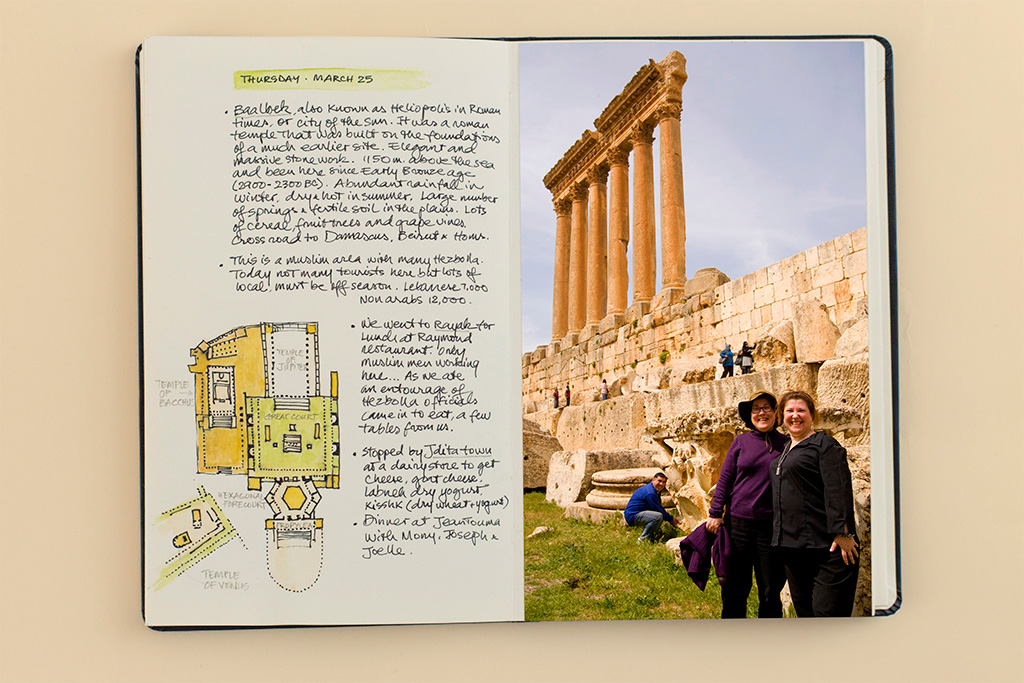 THURSDAY · MARCH 25
• Baalbek, also known as Heliopolis in Roman
times, or city of the sun. It was a roman
temple that was built on the foundations
of a much earlier site. Elegant and
massive stonework. 1150 m. above the sea
and been here since Early Bronze age
(2900-2300 BC). Abundant rainfall in
winter, dry & hot in summer. Large number
of springs & fertile soil in the plains. Lots
of cereal, fruit trees and grape vines.
Cross road to Damascus, Beirut & Homs.
• This is a muslim area with many Hezbolla.
Today not many tourists here but lots of
local, must be off season. Lebanese 7,000
Non arabs 12,000.
• We went to Rayak for
lunch at Raymond
restaurant. Only
muslim men working
here... As we ate
an entourage of
Hezbolla officials
came in to eat, a few
tables from us.
• Stopped by Jdita town
at a dairy store to get
cheese, goat cheese,
Labneh dry yogurt,
Kisshk (dry wheat + yogurt)
• Dinner at Jean Touma
with Mony, Joseph &
Joelle.
TEMPLE
OF
JUPITER
TEMPLE
OF
BACCHUS
GREAT COURT
HEXAGONAL
FORECOURT
PROPYLAEA
TEMPLE
OF VENUS